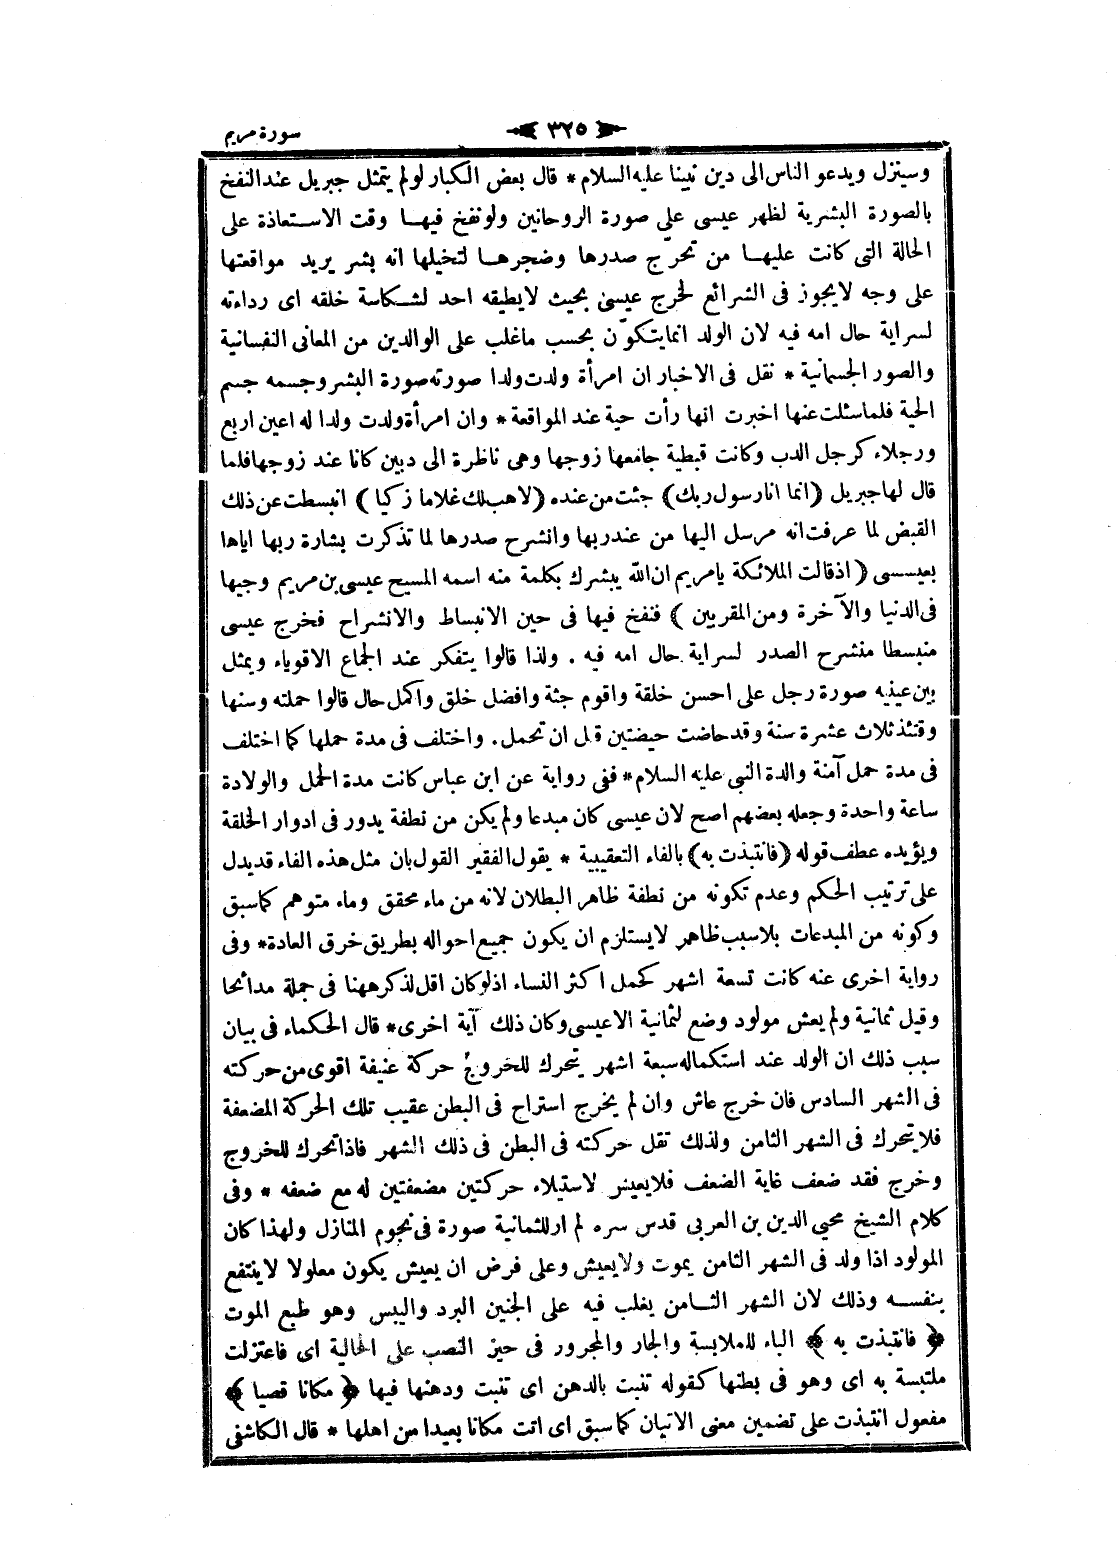 سورة مريم
٣٢٥
وسيتزل ويدعو الناس الى دين نبينا عليه السلام * قال بعض الكبار لولم يتمثل جبريل عند النفخ
بالصورة البشرية لظهر عيسى على صورة الروحانين ولونفخ فيها وقت الاستعاذة على
الحالة التى كانت عليها من تحرّج صدرها وضجرها لتخيلها انه بشر يريد مواقعتها
على وجه لايجوز فى الشرائع لخرج عيسى بحيث لايطيقه احد لشكاسة خلقه اى رداءته
لسراية حال امه فيه لان الولد انمايتكوّن بحسب ماغلب على الوالدين من المعانى النفسانية
والصور الجسمانية * نقل فى الاخبار ان امرأة ولدت ولدا صورته صورة البشر وجسمه جسم
الحية فلماسئلت عنها اخبرت انها رأت حية عند المواقعة * وان امرأة ولدت ولدا له اعين اربع
ورجلاه كرجل الدب وكانت قبطية جامعها زوجها وهى ناظرة الى دبين كانا عند زوجها فلما
قال لها جبريل (انما انا رسول ربك) جئت من عنده (لاهب لك غلاما زكيا) انبسطت عن ذلك
القبض لما عرفت انه مرسل اليها من عند ربها وانشرح صدرها لما تذكرت بشارة ربها اياها
بعيسى (اذ قالت الملائكة يامريم ان الله يبشرك بكلمة منه اسمه المسيح عيسى بن مريم وجيها
فى الدنيا والآخرة ومن المقربين) فنفخ فيها فى حين الانبساط والانشراح فخرج عيسى
منبسطا منشرح الصدر لسراية حال امه فيه . ولذا قالوا يتفكر عند الجماع الاقوياء ويمثل
بين عينيه صورة رجل على احسن خلقة واقوم جثة وافضل خلق واكمل حال قالوا حملته وسنها
وقتئذ ثلاث عشرة سنة وقد حاضت حيضتين قبل ان تحمل . واختلف فى مدة حملها كما اختلف
فى مدة حمل آمنة والدة النبى عليه السلام * ففى رواية عن ابن عباس كانت مدة الحمل والولادة
ساعة واحدة وجعله بعضهم اصح لان عيسى كان مبدعا ولم يكن من نطفة يدور فى ادوار الخلقة
ويؤيده عطف قوله (فانتبذت به) بالفاء التعقيبية * يقول الفقير القول بان مثل هذه الفاء قديدل
على ترتيب الحكم وعدم تكونه من نطفة ظاهر البطلان لانه من ماء محقق وماء متوهم كما سبق
وكونه من المبدعات بلاسبب ظاهر لايستلزم ان يكون جميع احواله بطريق خرق العادة * وفى
رواية اخرى عنه كانت تسعة اشهر كحمل اكثر النساء اذ لوكان اقل لذكر ههنا فى جملة مدائحا
وقيل ثمانية ولم يعش مولود وضع لثمانية الا عيسى وكان ذلك آية اخرى * قال الحكماء فى بيان
سبب ذلك ان الولد عند استكماله سبعة اشهر يتحرك للخروج حركة عنيفة اقوى من حركته
فى الشهر السادس فان خرج عاش وان لم يخرج استراح فى البطن عقيب تلك الحركة المضعفة
فلا يتحرك فى الشهر الثامن ولذلك تقل حركته فى البطن فى ذلك الشهر فاذا تحرك للخروج
وخرج فقد ضعف غاية الضعف فلايعيش لاستيلاء حركتين مضعفتين له مع ضعفه * وفى
كلام الشيخ محيى الدين بن العربى قدس سره لم ار للثمانية صورة فى نجوم المنازل ولهذا كان
المولود اذا ولد فى الشهر الثامن يموت ولايعيش وعلى فرض ان يعيش يكون معلولا لاينتفع
بنفسه وذلك لان الشهر الثامن يغلب فيه على الجنين البرد واليبس وهو طبع الموت
﴿ فانتبذت به ﴾ الباء للملابسة والجار والمجرور فى حيز النصب على الحالية اى فاعتزلت
ملتبسة به اى وهو فى بطنها كقوله تنبت بالدهن اى تنبت ودهنها فيها ﴿ مكانا قصيا ﴾
مفعول انتبذت على تضمين معنى الاتيان كما سبق اى اتت مكانا بعيدا من اهلها * قال الكاشفى